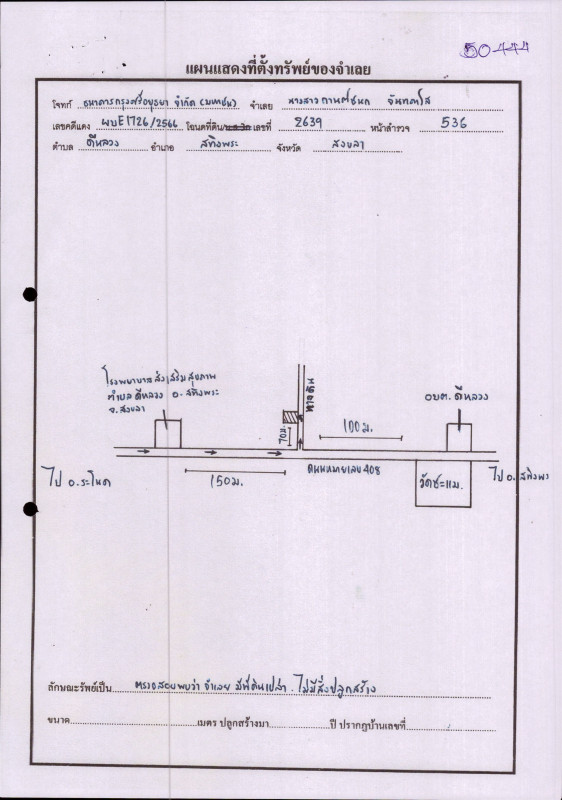 50-444
แผนแสดงที่ตั้งทรัพย์ของจำเลย
โจทก์ ธนาคารกรุงศรีอยุธยา จำกัด (มหาชน) จำเลย นางสาว
เลขคดีแดง ผบE1726/2566 โฉนดที่ดิน เลขที่ 2639 หน้าสำรวจ 536
ตำบล ดีหลวง อำเภอ สทิงพระ จังหวัด สงขลา
โรงพยาบาลส่งเสริมสุขภาพ
ตำบลดีหลวง อ.สทิงพระ
จ.สงขลา
ทางดิน
อบต.ดีหลวง
70ม.
100ม.
ไป อ.ระโนด
150ม.
ถนนหมายเลข 408
วัดชะแม.
ไป อ.สทิงพระ
ลักษณะรัพย์เป็น ตรวจสอบพบว่า จำเลย มีที่ดินเปล่า. ไม่มีสิ่งปลูกสร้าง
ขนาด เมตร ปลูกสร้างมา ปี ปรากฏบ้านเลขที่